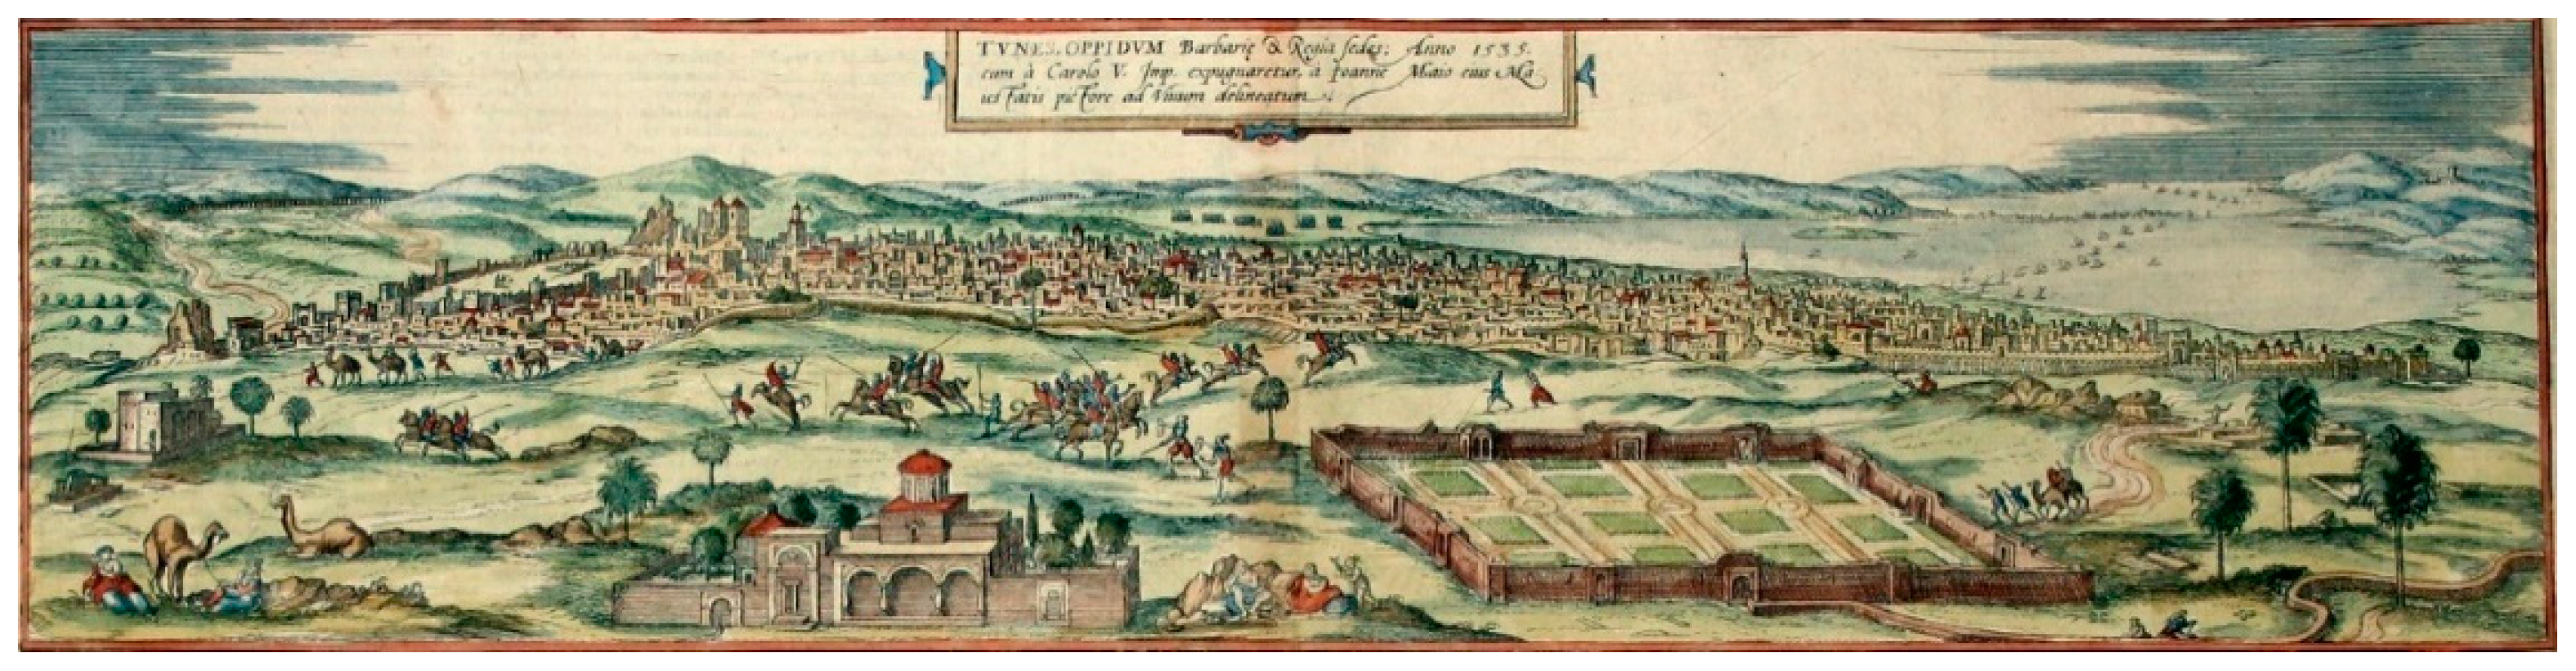 TVNES, OPPIDVM Barbarię & Regia sedes; Anno 1535.
cum à Carolo V. Imp. expugnaretur, à Joanne Maio eius Ma
iestatis pictore ad vivum delineatum.